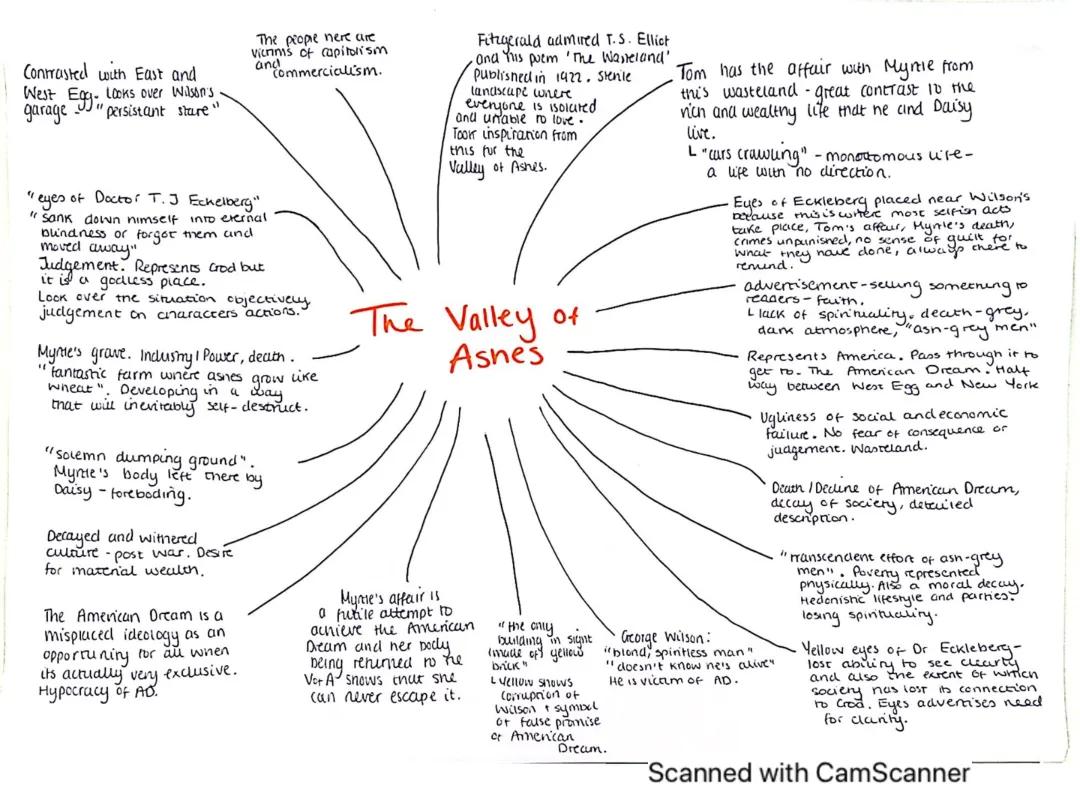 The people here are
victims of capitalism
and
commercialism.
Contrasted with East and
West Egg. Looks over Wilson's
garage - "persistant stare"
Fitzgerald admired T.S. Elliot
and his poem 'The Wasteland'
Published in 1922. Sterile
landscape where
everyone is isolated
and unable to love.
Took inspiration from
this for the
Valley of Ashes.
Tom has the affair with Myrtle from
this wasteland - great contrast to the
rich and wealthy life that he and Daisy
live.
"cars crawling" - monotomous life -
a life with no direction.
"eyes of Doctor T.J Eckelberg"
"sank down himself into eternal
blindness or forgot them and
moved away"
Judgement. Represents God but
it is a godless place.
Look over the situation objectively,
judgement on characters actions.
Eyes of Eckleberg placed near Wilson's
because this is where most selfish acts
take place, Tom's affair, Myrtle's death,
crimes unpunished, no sense of guilt for
what they have done, always there to
remind.
advertisement - selling something to
readers - faith.
lack of spirituality, death - grey,
dark atmosphere, "ash-grey men"
The Valley of
Ashes
Myrtle's grave. Industry/Power, death.
"fantastic farm where ashes grow like
wheat". Developing in a way
that will inevitably self-destruct.
Represents America. Pass through it to
get to - The American Dream. Half
way between West Egg and New York
Ugliness of social and economic
failure. No fear of consequence or
judgement. Wasteland.
"solemn dumping ground".
Myrtle's body left there by
Daisy - foreboding.
Death/Decline of American Dream,
decay of society, detailed
description.
Decayed and withered
culture - post war. Desire
for material wealth.
"transcendent effort of ash-grey
men". Poverty represented
physically. Also a moral decay.
Hedonistic lifestyle and parties.
losing spirituality.
The American Dream is a
misplaced ideology as an
opportunity for all when
its actually very exclusive.
Hypocracy of AD.
Myrtle's affair is
a futile attempt to
achieve the American
Dream and her body
being returned to the
VofA shows that she
can never escape it.
"the only
building in sight
(made of) yellow
brick"
Yellow shows
corruption of
Wilson + symbol
of false promise
of American
Dream.
George Wilson:
"blond, spiritless man"
"doesn't know he's alive"
He is victim of AD.
Yellow eyes of Dr Eckleberg -
lost ability to see clearly
and also the extent of which
society has lost its connection
to God. Eyes advertises need
for clarity.
Scanned with CamScanner